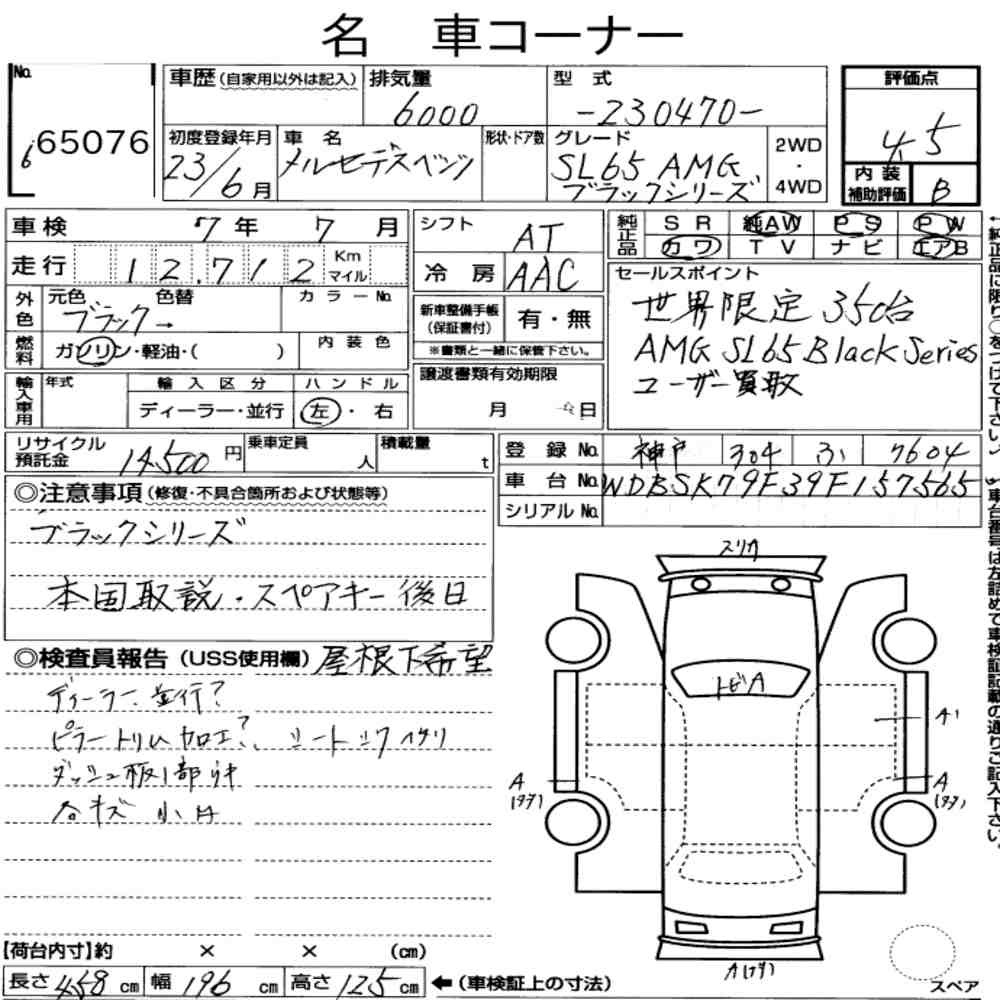 名 車コーナー
No. 6 65076
車歴 (自家用以外は記入) 排気量 6000 型 式 -230470- 評価点 4.5
初度登録年月 23/6月 車 名 メルセデスベンツ 形状・ドア数 グレード SL65 AMG ブラックシリーズ 2WD・4WD 内 装 補助評価 B
車検 7年 7月 シフト AT 純正品 SR 純AW PS PW
走行 12,712 Km マイル 冷 房 AAC カワ TV ナビ エアB
外色 元色 ブラック→ 色替 カラーNo. 新車整備手帳 (保証書付) 有・無 セールスポイント
世界限定 350台
燃料 ガソリン・軽油・( ) 内 装 色 ※書類と一緒に保管下さい。
AMG SL65 Black Series
輸入車用 年式 輸 入 区 分 ハ ン ド ル 譲渡書類有効期限
ユーザー買取
ディーラー・並行 左・右 月 日
リサイクル預託金 14,500円 乗車定員 人 積載量 t 登 録 No. 神戸 304 7604
車 台 No. WDBSK79F39F157565
シリアルNo.
◎注意事項 (修復・不具合箇所および状態等)
ブラックシリーズ
本国取説・スペアキー後日
◎検査員報告 (USS使用欄) 屋根下希望
ディーラー、並行?
ピラートリム加工?、シートシワ
ダッシュ板1部
各キズ 小
スリキ
トビA
A
A
A
【荷台内寸】約 × × (cm)
長さ 458 cm 幅 196 cm 高さ 125 cm ←(車検証上の寸法)
スペア
←純正品に限り○をつけて下さい。
車台番号は左詰めで車検証記載の通りご記入下さい。